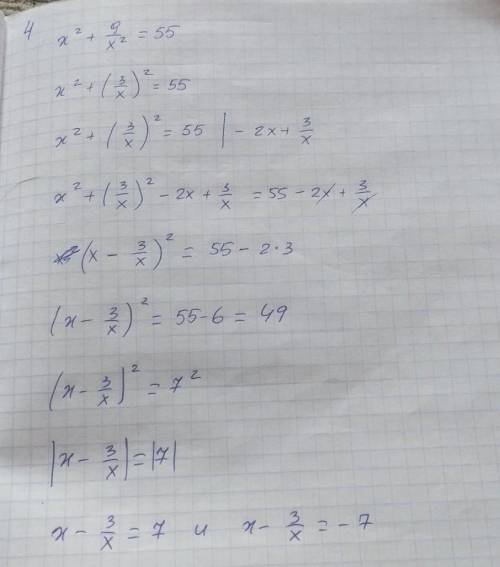 4 x² + 9/x² = 55
x² + (3/x)² = 55
x² + (3/x)² = 55 | - 2x + 3/x
x² + (3/x)² - 2x + 3/x = 55 - 2x + 3/x
(x - 3/x)² = 55 - 2·3
(x - 3/x)² = 55 - 6 = 49
(x - 3/x|² = 7²
|x - 3/x| = |7|
x - 3/x = 7 и x - 3/x = - 7